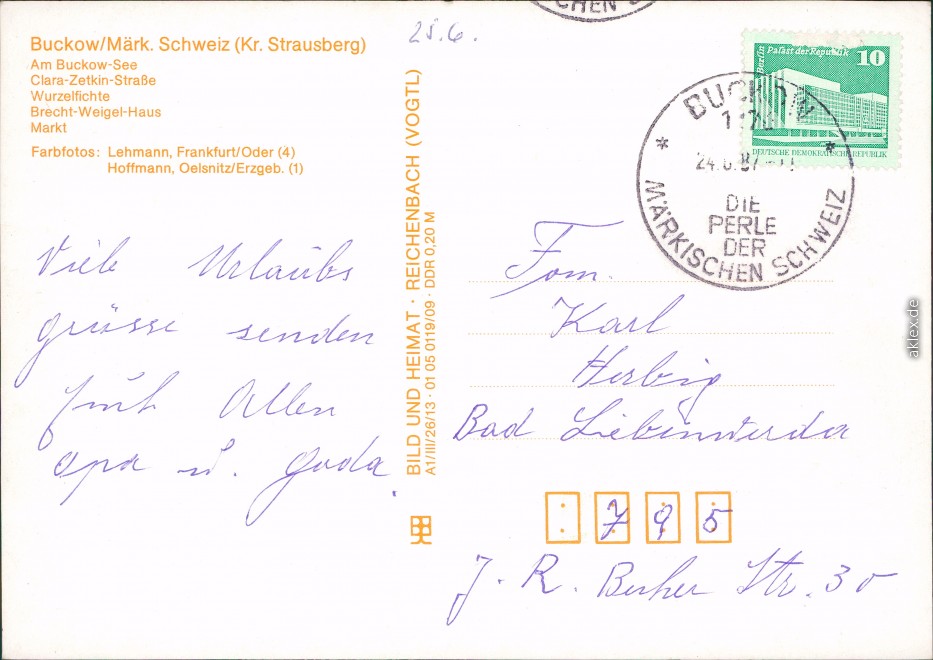 CHEN
25.6.
Buckow/Märk. Schweiz (Kr. Strausberg)
Am Buckow-See
Clara-Zetkin-Straße
Wurzelfichte
Brecht-Weigel-Haus
Markt
Farbfotos: Lehmann, Frankfurt/Oder (4)
Hoffmann, Oelsnitz/Erzgeb. (1)
Viele Urlaubs
grüsse senden
Allen
opa u.
BILD UND HEIMAT · REICHENBACH (VOGTL)
A1/III/26/13 · 01 05 0119/09 · DDR 0,20 M
Berlin Palast der Republik 10
DEUTSCHE DEMOKRATISCHE REPUBLIK
BUCKOW
DIE
PERLE
DER
MÄRKISCHEN SCHWEIZ
Fam.
Karl
Herbig
Bad Liebenwerda
795
J. R. Becher Str. 30
aklex.de